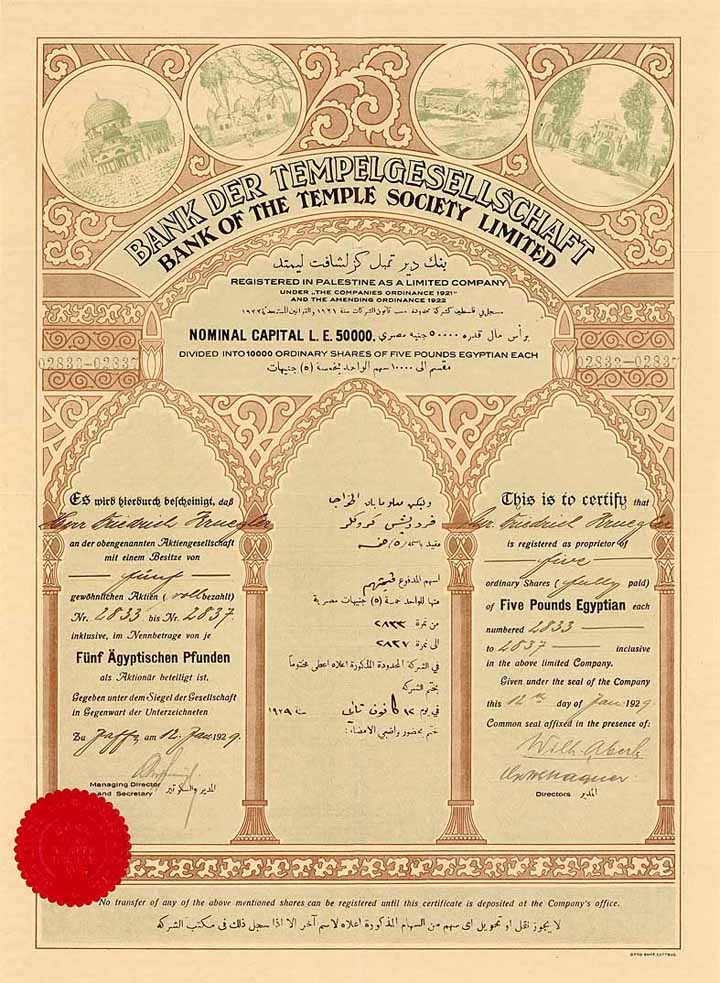 BANK DER TEMPELGESELLSCHAFT
BANK OF THE TEMPLE SOCIETY LIMITED
بنك دير تمبل كزلشافت ليمتد
REGISTERED IN PALESTINE AS A LIMITED COMPANY
UNDER „THE COMPANIES ORDINANCE 1921"
AND THE AMENDING ORDINANCE 1922
مسجل في فلسطين كشركة محدودة حسب قانون الشركات سنة ١٩٢١ والقوانين المستبدلة ١٩٢٢
NOMINAL CAPITAL L. E. 50000. برأس مال قدره ٥٠٠٠٠ جنيه مصري
02833-02837
DIVIDED INTO 10000 ORDINARY SHARES OF FIVE POUNDS EGYPTIAN EACH
02833-02837
مقسم الى ١٠٠٠٠ سهم الواحد بخمسة (٥) جنيهات
Es wird hierdurch bescheinigt, daß
Herr Friedrich Kruegler
an der obengenannten Aktiengesellschaft
mit einem Besitze von
— fünf —
gewöhnlichen Aktien (vollbezahlt)
Nr. 2833 bis Nr. 2837
inklusive, im Nennbetrage von je
Fünf Ägyptischen Pfunden
als Aktionär beteiligt ist.
Gegeben unter dem Siegel der Gesellschaft
in Gegenwart der Unterzeichneten
Zu Jaffa, am 12. Jan. 1929.
Managing Director
and Secretary المدير والسكرتير
وليكن معلوما بان الخواجا
مقيد باسمه (٥) خمسة
اسهم المدفوع قيمتهم
منها للواحد خمسة (٥) جنيهات مصرية
من نمرة ٢٨٣٣
الى نمرة ٢٨٣٧
في الشركة المحدودة المذكورة اعلاه اعطى مختوماً
بختم الشركة
في يوم ١٢ كانون ثاني سنة ١٩٢٩
ختم بحضور واضعي الامضاء:
This is to certify that
Mr. Friedrich Kruegler
is registered as proprietor of
— five —
ordinary Shares (fully paid)
of Five Pounds Egyptian each
numbered 2833 —
to 2837 — inclusive
in the above limited Company.
Given under the seal of the Company
this 12th day of Jan. 1929.
Common seal affixed in the presence of:
Wilh. Aberle
Directors المدير
No transfer of any of the above mentioned shares can be registered until this certificate is deposited at the Company's office.
لا يجوز نقل او تحويل اى سهم من السهام المذكورة اعلاه لاسم آخر الا اذا سجل ذلك فى مكتب الشركة